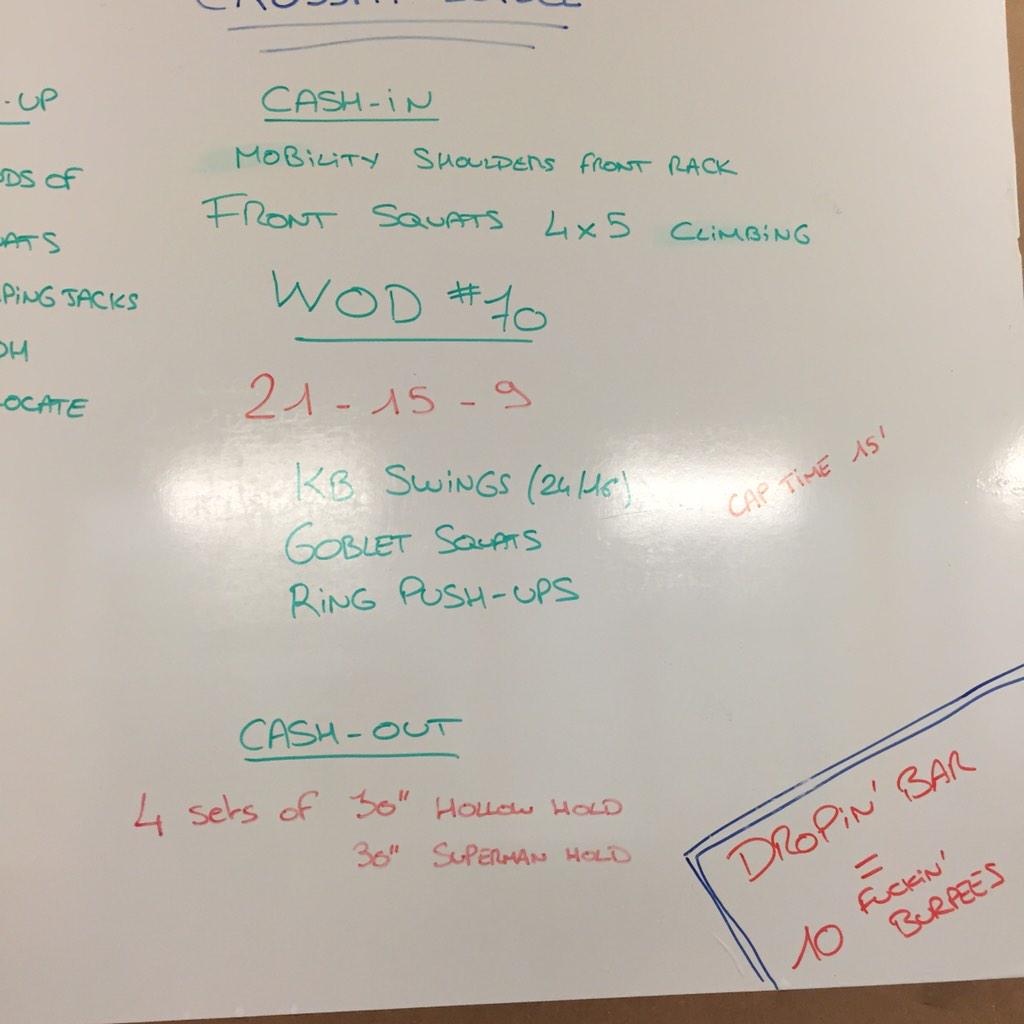 CROSSFIT
-UP
OF
PING JACKS
OCATE
CASH-IN
MOBILITY SHOULDERS FRONT RACK
FRONT SQUATS 4x5 CLIMBING
WOD #70
21 - 15 - 9
KB SWINGS (24/16)
GOBLET SQUATS
RING PUSH-UPS
CAP TIME 15'
CASH-OUT
4 sets of 30" HOLLOW HOLD
30" SUPERMAN HOLD
DROPIN' BAR
=
10 FUCKIN'
BURPEES